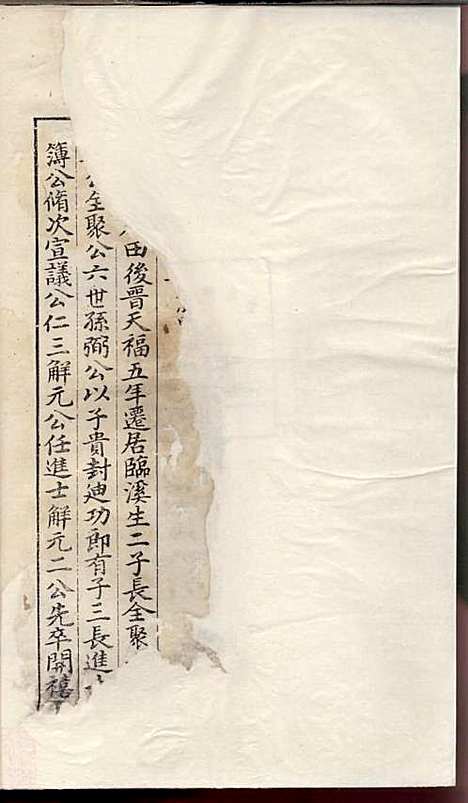 田後晉天福五年遷居臨溪生二子長全聚
公全聚公六世孫弼公以子貴封迪功郎有子三長進
簿公脩次宣議公仁三解元公任進士解元二公先卒開禧